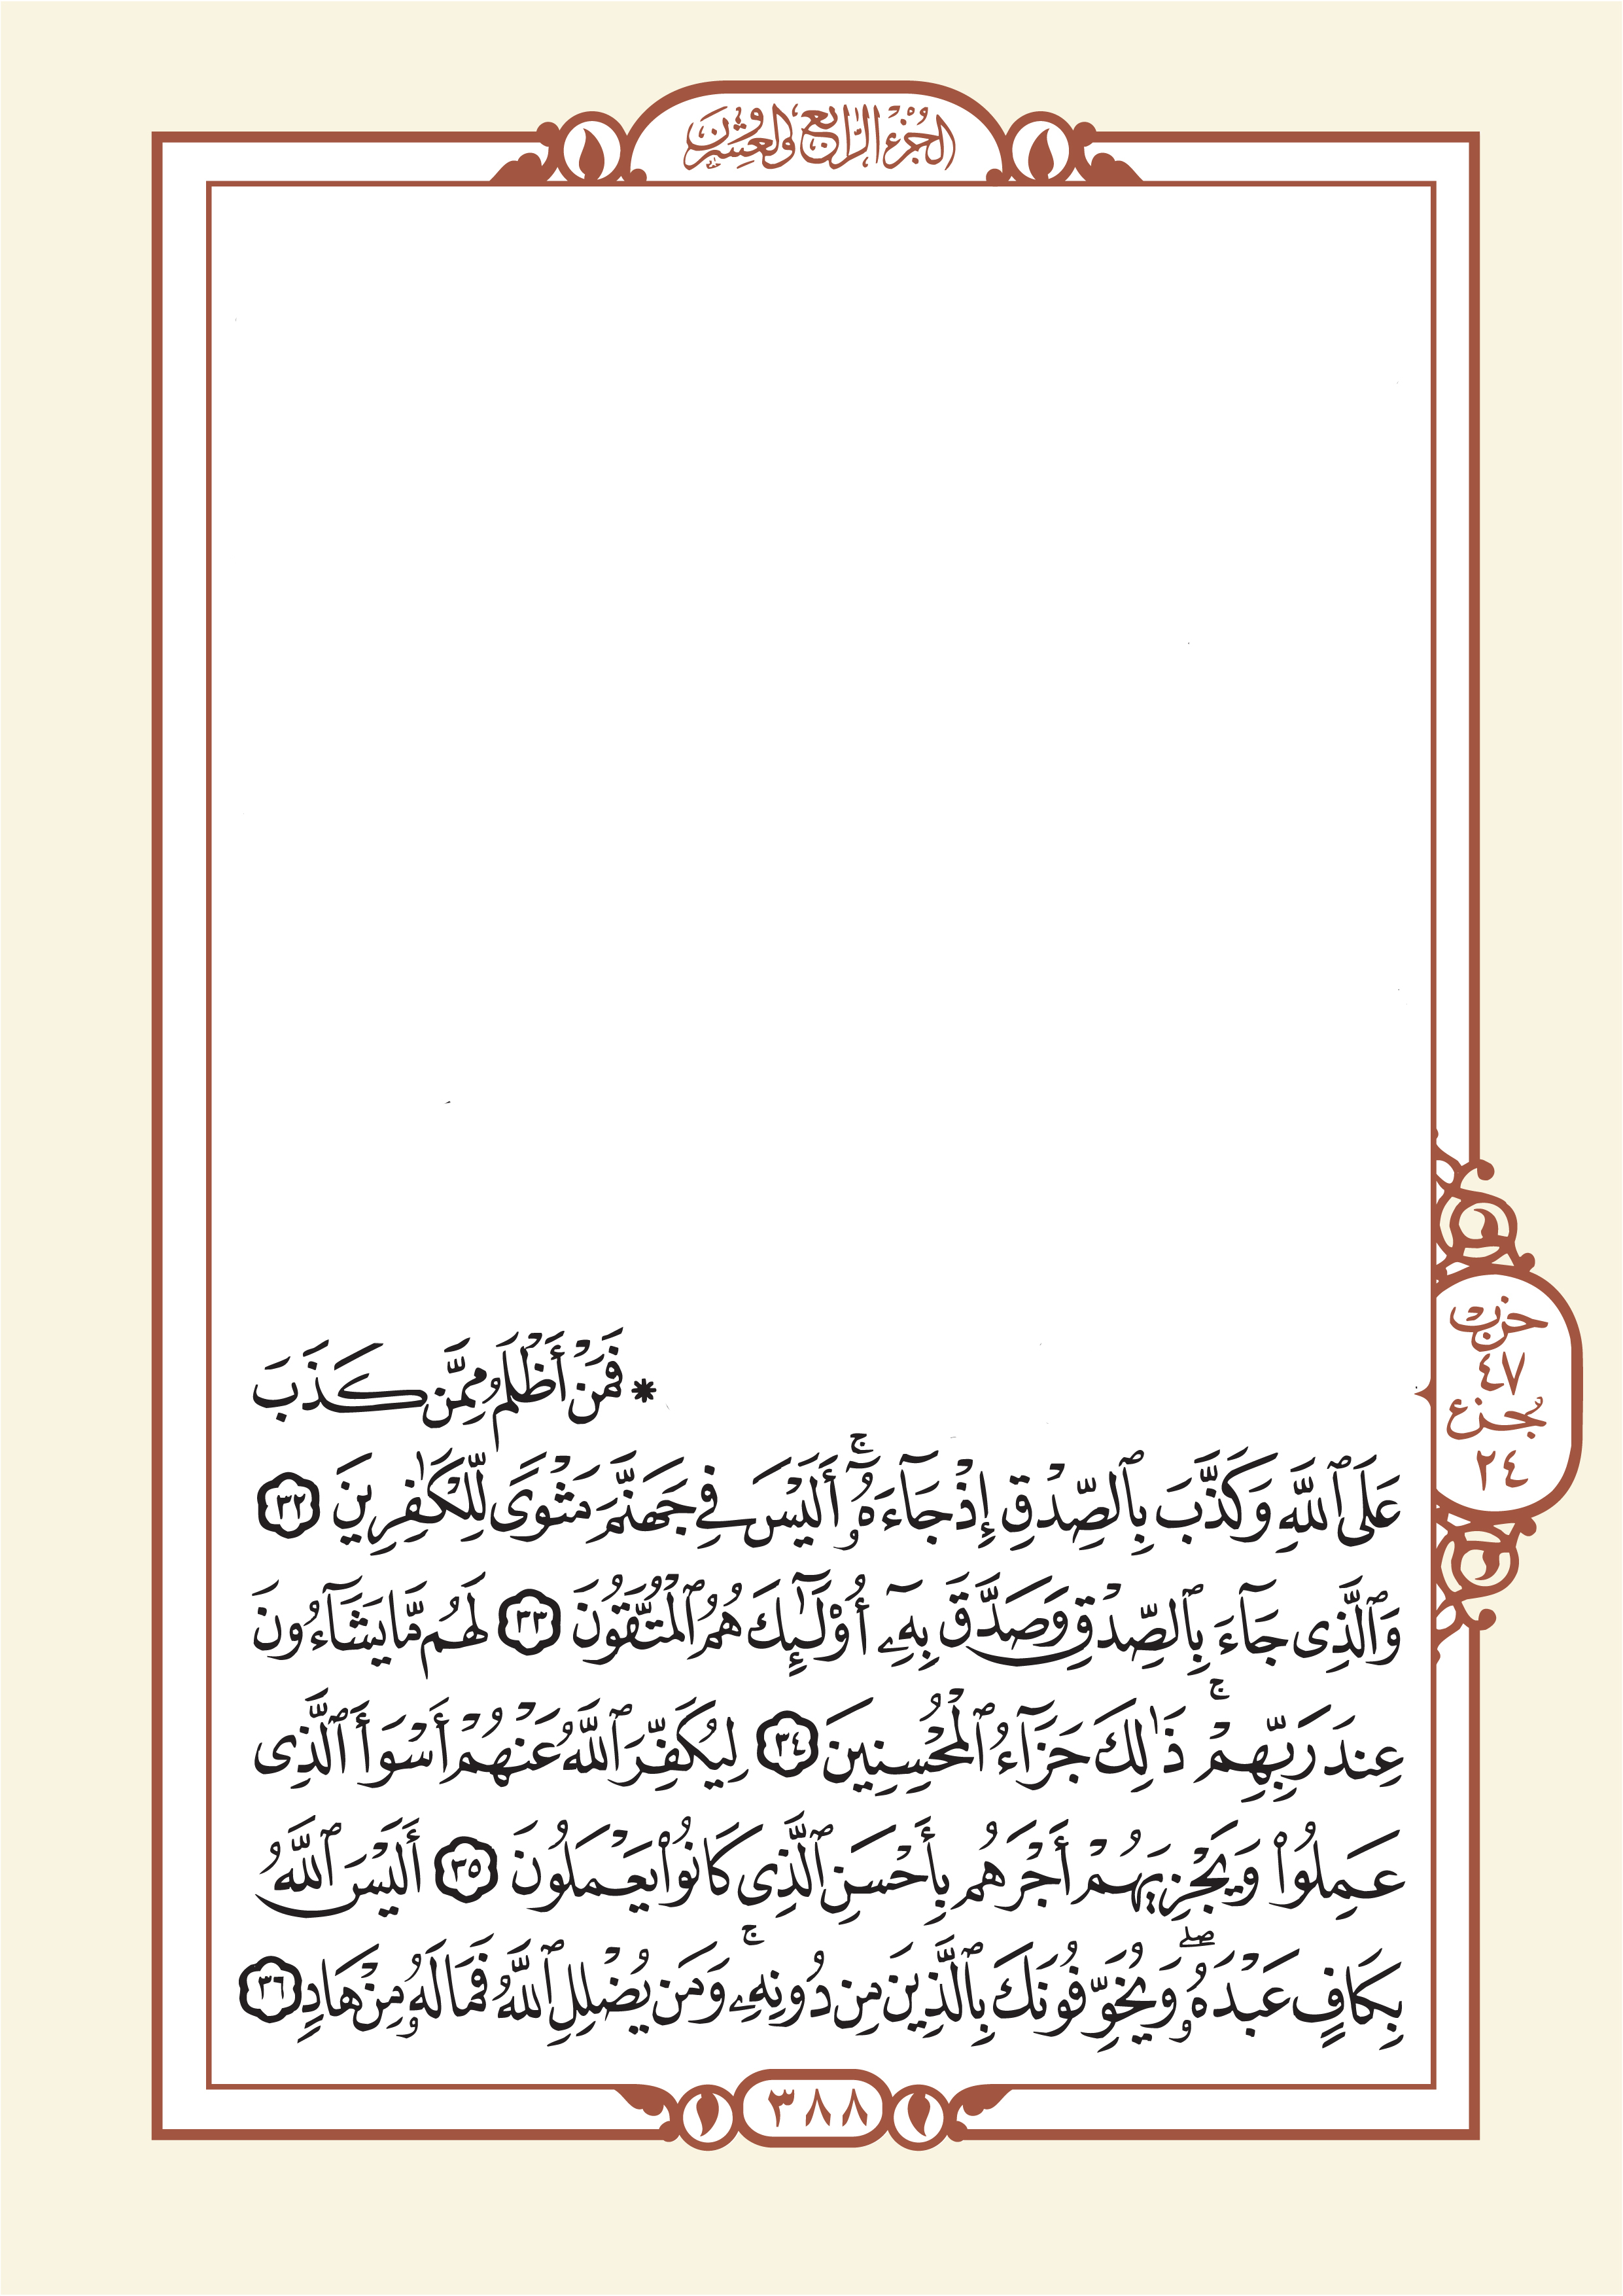 الجزء الرابع والعشرون
* فَمَنْ أَظْلَمُ مِمَّن كَذَبَ
عَلَى ٱللَّهِ وَكَذَّبَ بِٱلصِّدْقِ إِذْ جَآءَهُۥٓ ۚ أَلَيْسَ فِى جَهَنَّمَ مَثْوًى لِّلْكَٰفِرِينَ ٣٢
وَٱلَّذِى جَآءَ بِٱلصِّدْقِ وَصَدَّقَ بِهِۦٓ أُو۟لَٰٓئِكَ هُمُ ٱلْمُتَّقُونَ ٣٣ لَهُم مَّا يَشَآءُونَ
عِندَ رَبِّهِمْ ۚ ذَٰلِكَ جَزَآءُ ٱلْمُحْسِنِينَ ٣٤ لِيُكَفِّرَ ٱللَّهُ عَنْهُمْ أَسْوَأَ ٱلَّذِى
عَمِلُوا۟ وَيَجْزِيَهُمْ أَجْرَهُم بِأَحْسَنِ ٱلَّذِى كَانُوا۟ يَعْمَلُونَ ٣٥ أَلَيْسَ ٱللَّهُ
بِكَافٍ عَبْدَهُۥ ۖ وَيُخَوِّفُونَكَ بِٱلَّذِينَ مِن دُونِهِۦ ۚ وَمَن يُضْلِلِ ٱللَّهُ فَمَا لَهُۥ مِنْ هَادٍ ٣٦
حزب
٤٧
جُزء
٢٤
٣٨٨